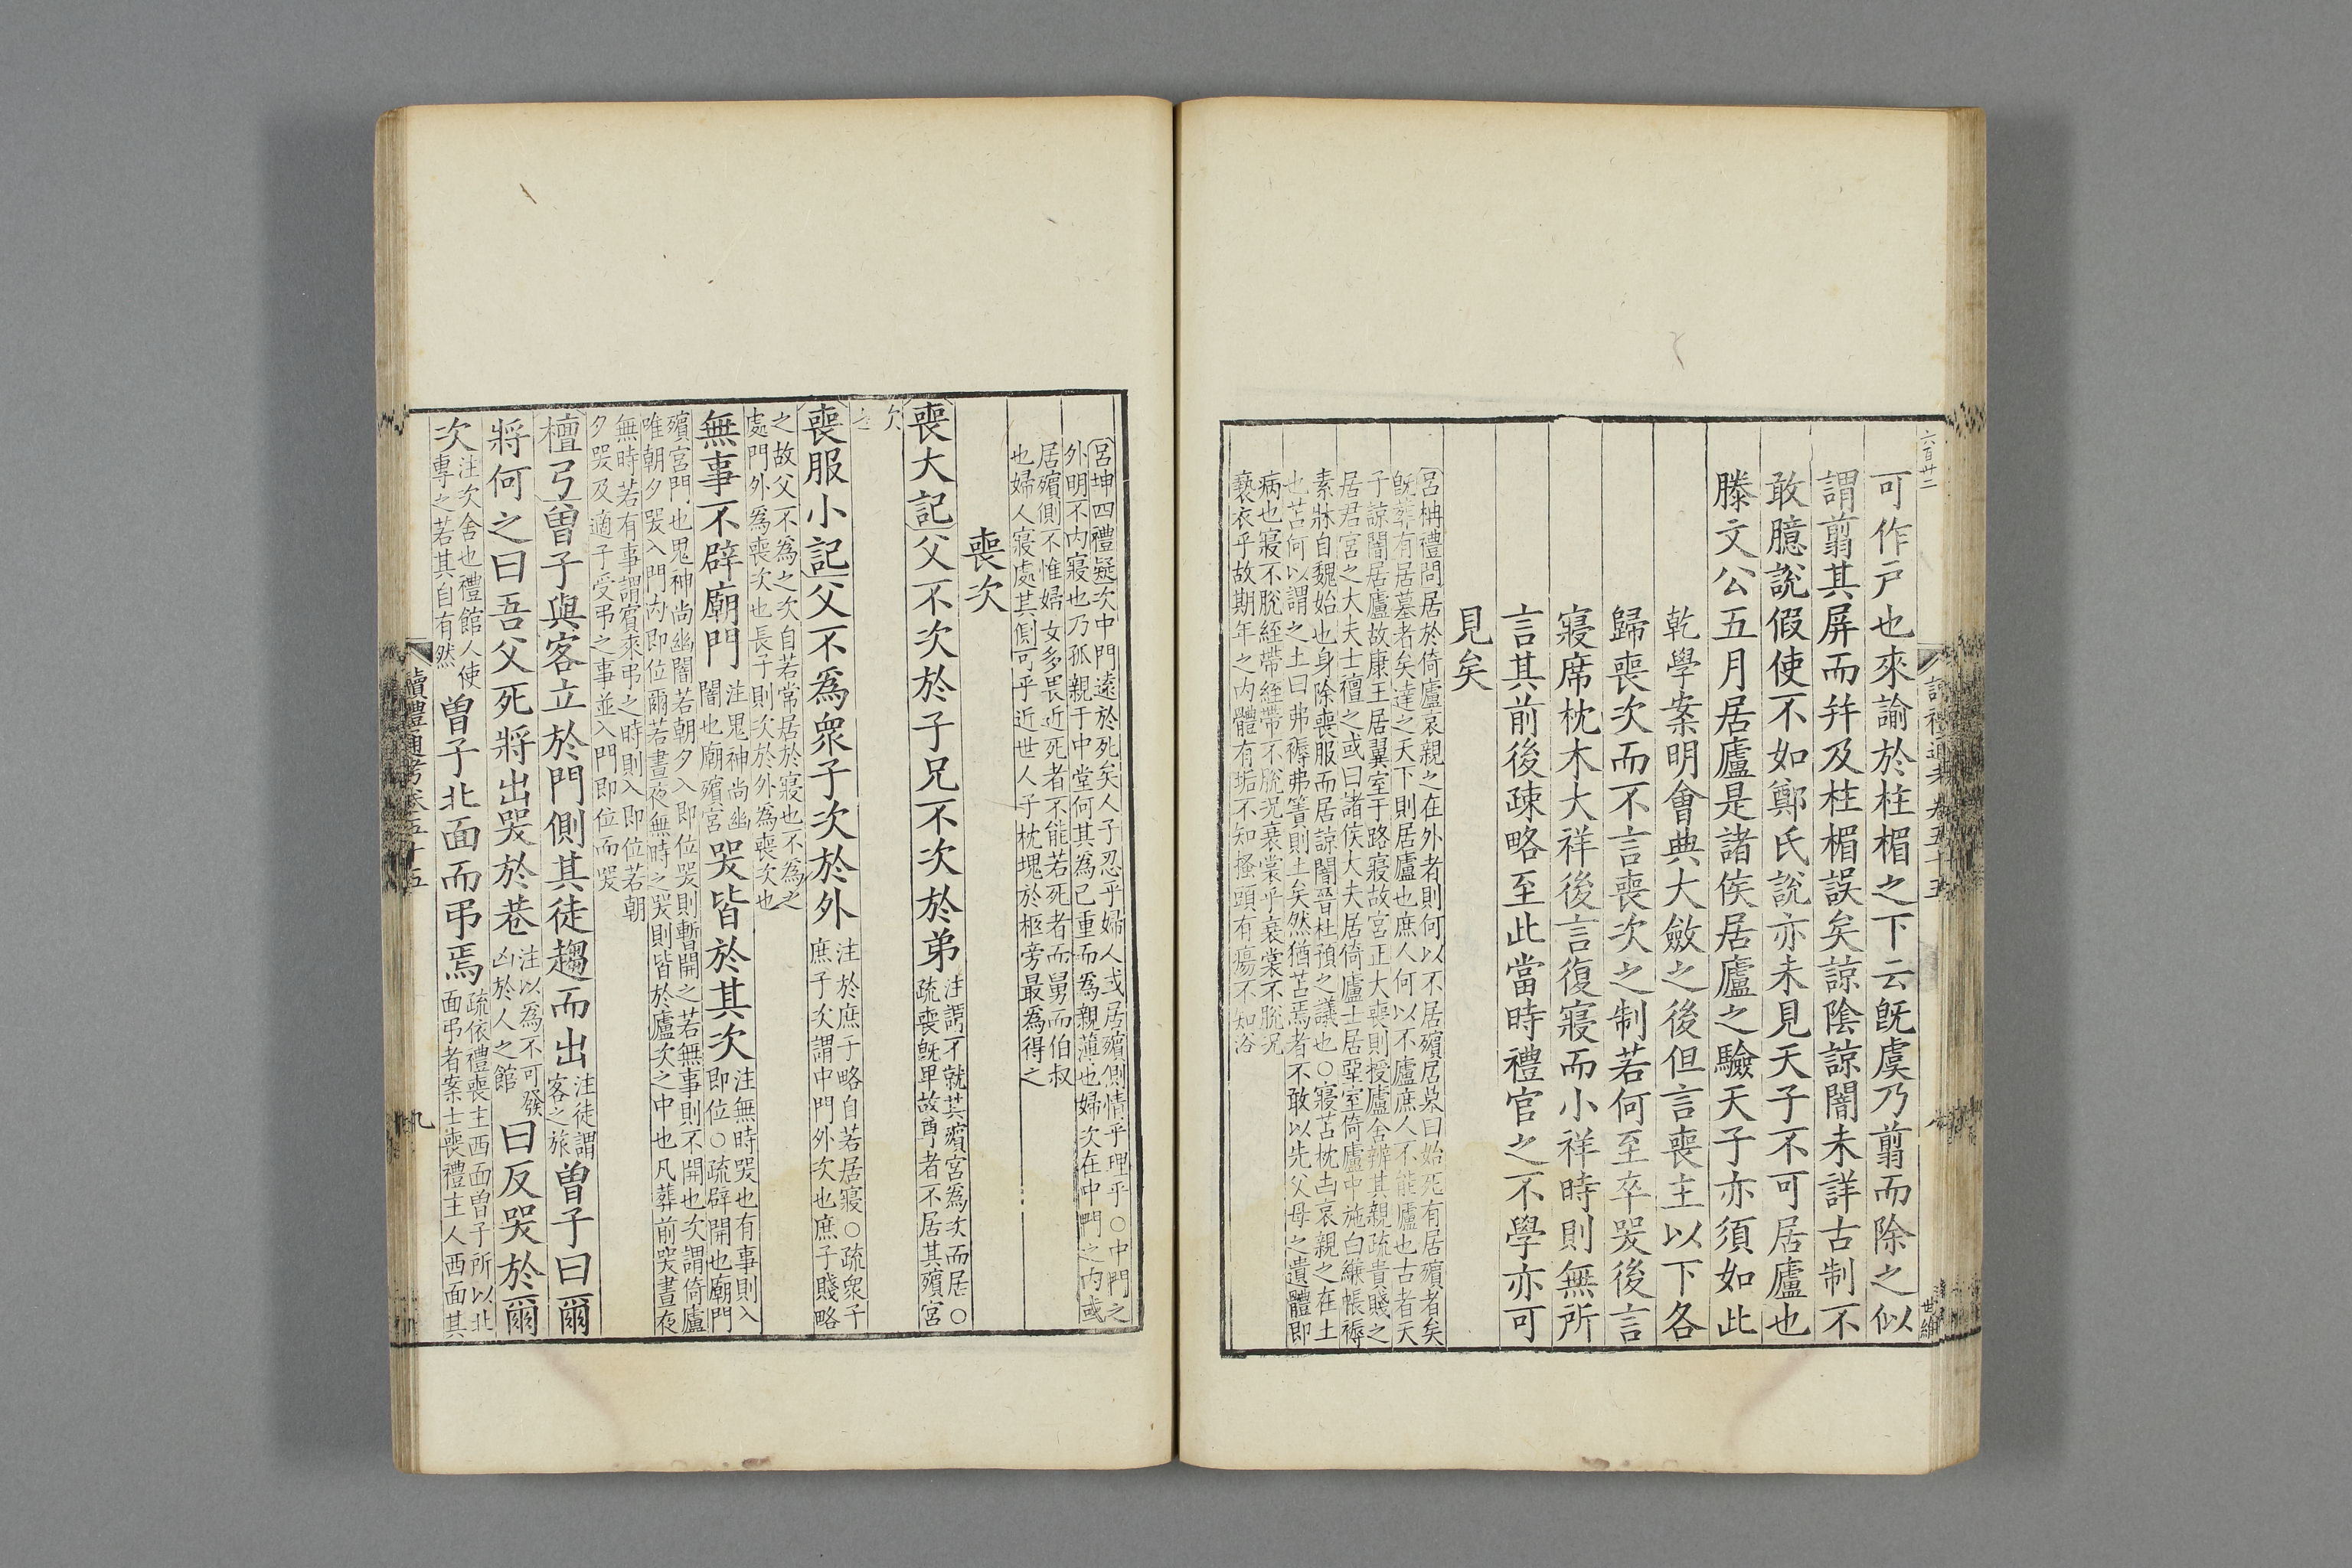 六百廿二
可作戸也來諭於柱楣之下云旣虞乃翦而除之似
謂翦其屏而幷及柱楣誤矣諒陰諒闇未詳古制不
敢臆說假使不如鄭氏說亦未見天子不可居廬也
滕文公五月居廬是諸侯居廬之驗天子亦須如此
乾學案明會典大斂之後但言喪主以下各
歸喪次而不言喪次之制若何至卒哭後言
寢席枕木大祥後言復寢而小祥時則無所
言其前後疎略至此當時禮官之不學亦可
見矣
呂柟禮問居於倚廬哀親之在外者則何以不居殯居墓曰始死有居殯者矣
旣葬有居墓者矣達之天下則居廬也庶人何以不廬庶人不能廬也古者天
子諒闇居廬故康王居翼室于路寢故宮正大喪則授廬舍辨其親疏貴賤之
居君宮之大夫士襢之或曰諸侯大夫居倚廬士居堊室倚廬中施白縑帳褥
素牀自魏始也身除喪服而居諒闇晉杜預之議也○寢苫枕凷哀親之在土
也苫何以謂之土曰弗褥弗簀則土矣然猶苫焉者不敢以先父母之遺體卽
病也寢不脫絰帶絰帶不脫况衰裳乎衰裳不脫况
褻衣乎故期年之內體有垢不知搔頭有瘍不知浴
讀禮通考卷五十五
呂坤四禮疑次中門遠於死矣人子忍乎婦人或居殯側情乎理乎○中門之
外明不內寢也乃孤親于中堂何其為已重而為親薄也婦次在中門之內或
居殯側不惟婦女多畏近死者不能若死者而舅而伯叔
也婦人寢處其側可乎近世人子枕塊於柩旁最為得之
喪次
喪大記父不次於子兄不次於弟
注謂不就其殯宮為次而居○
疏喪旣畢故尊者不居其殯宮
次
之
喪服小記父不爲衆子次於外
注於庶子略自若居寢○疏衆子
庶子次謂中門外次也庶子賤略
之故父不為之次自若常居於寢也不為之
處門外為喪次也長子則次於外為喪次也
無事不辟廟門
注鬼神尚幽
闇也廟殯宮
哭皆於其次
注無時哭也有事則入
卽位○疏辟開也廟門
殯宮門也鬼神尚幽闇若朝夕入卽位哭則暫開之若無事則不開也次謂倚廬
唯朝夕哭入門內卽位爾若晝夜無時之哭則皆於廬次之中也凡葬前哭晝夜
無時若有事謂賓來弔之時則入卽位若朝
夕哭及適子受弔之事並入門卽位而哭
檀弓曾子與客立於門側其徒趨而出
注徒謂
客之旅
曾子曰爾
將何之曰吾父死將出哭於巷
注以為不可發
凶於人之館
曰反哭於爾
次
注次舍也禮館人使
專之若其自有然
曾子北面而弔焉
疏依禮喪主西面曾子所以北
面弔者案士喪禮主人西面其
讀禮通考卷五十五
九